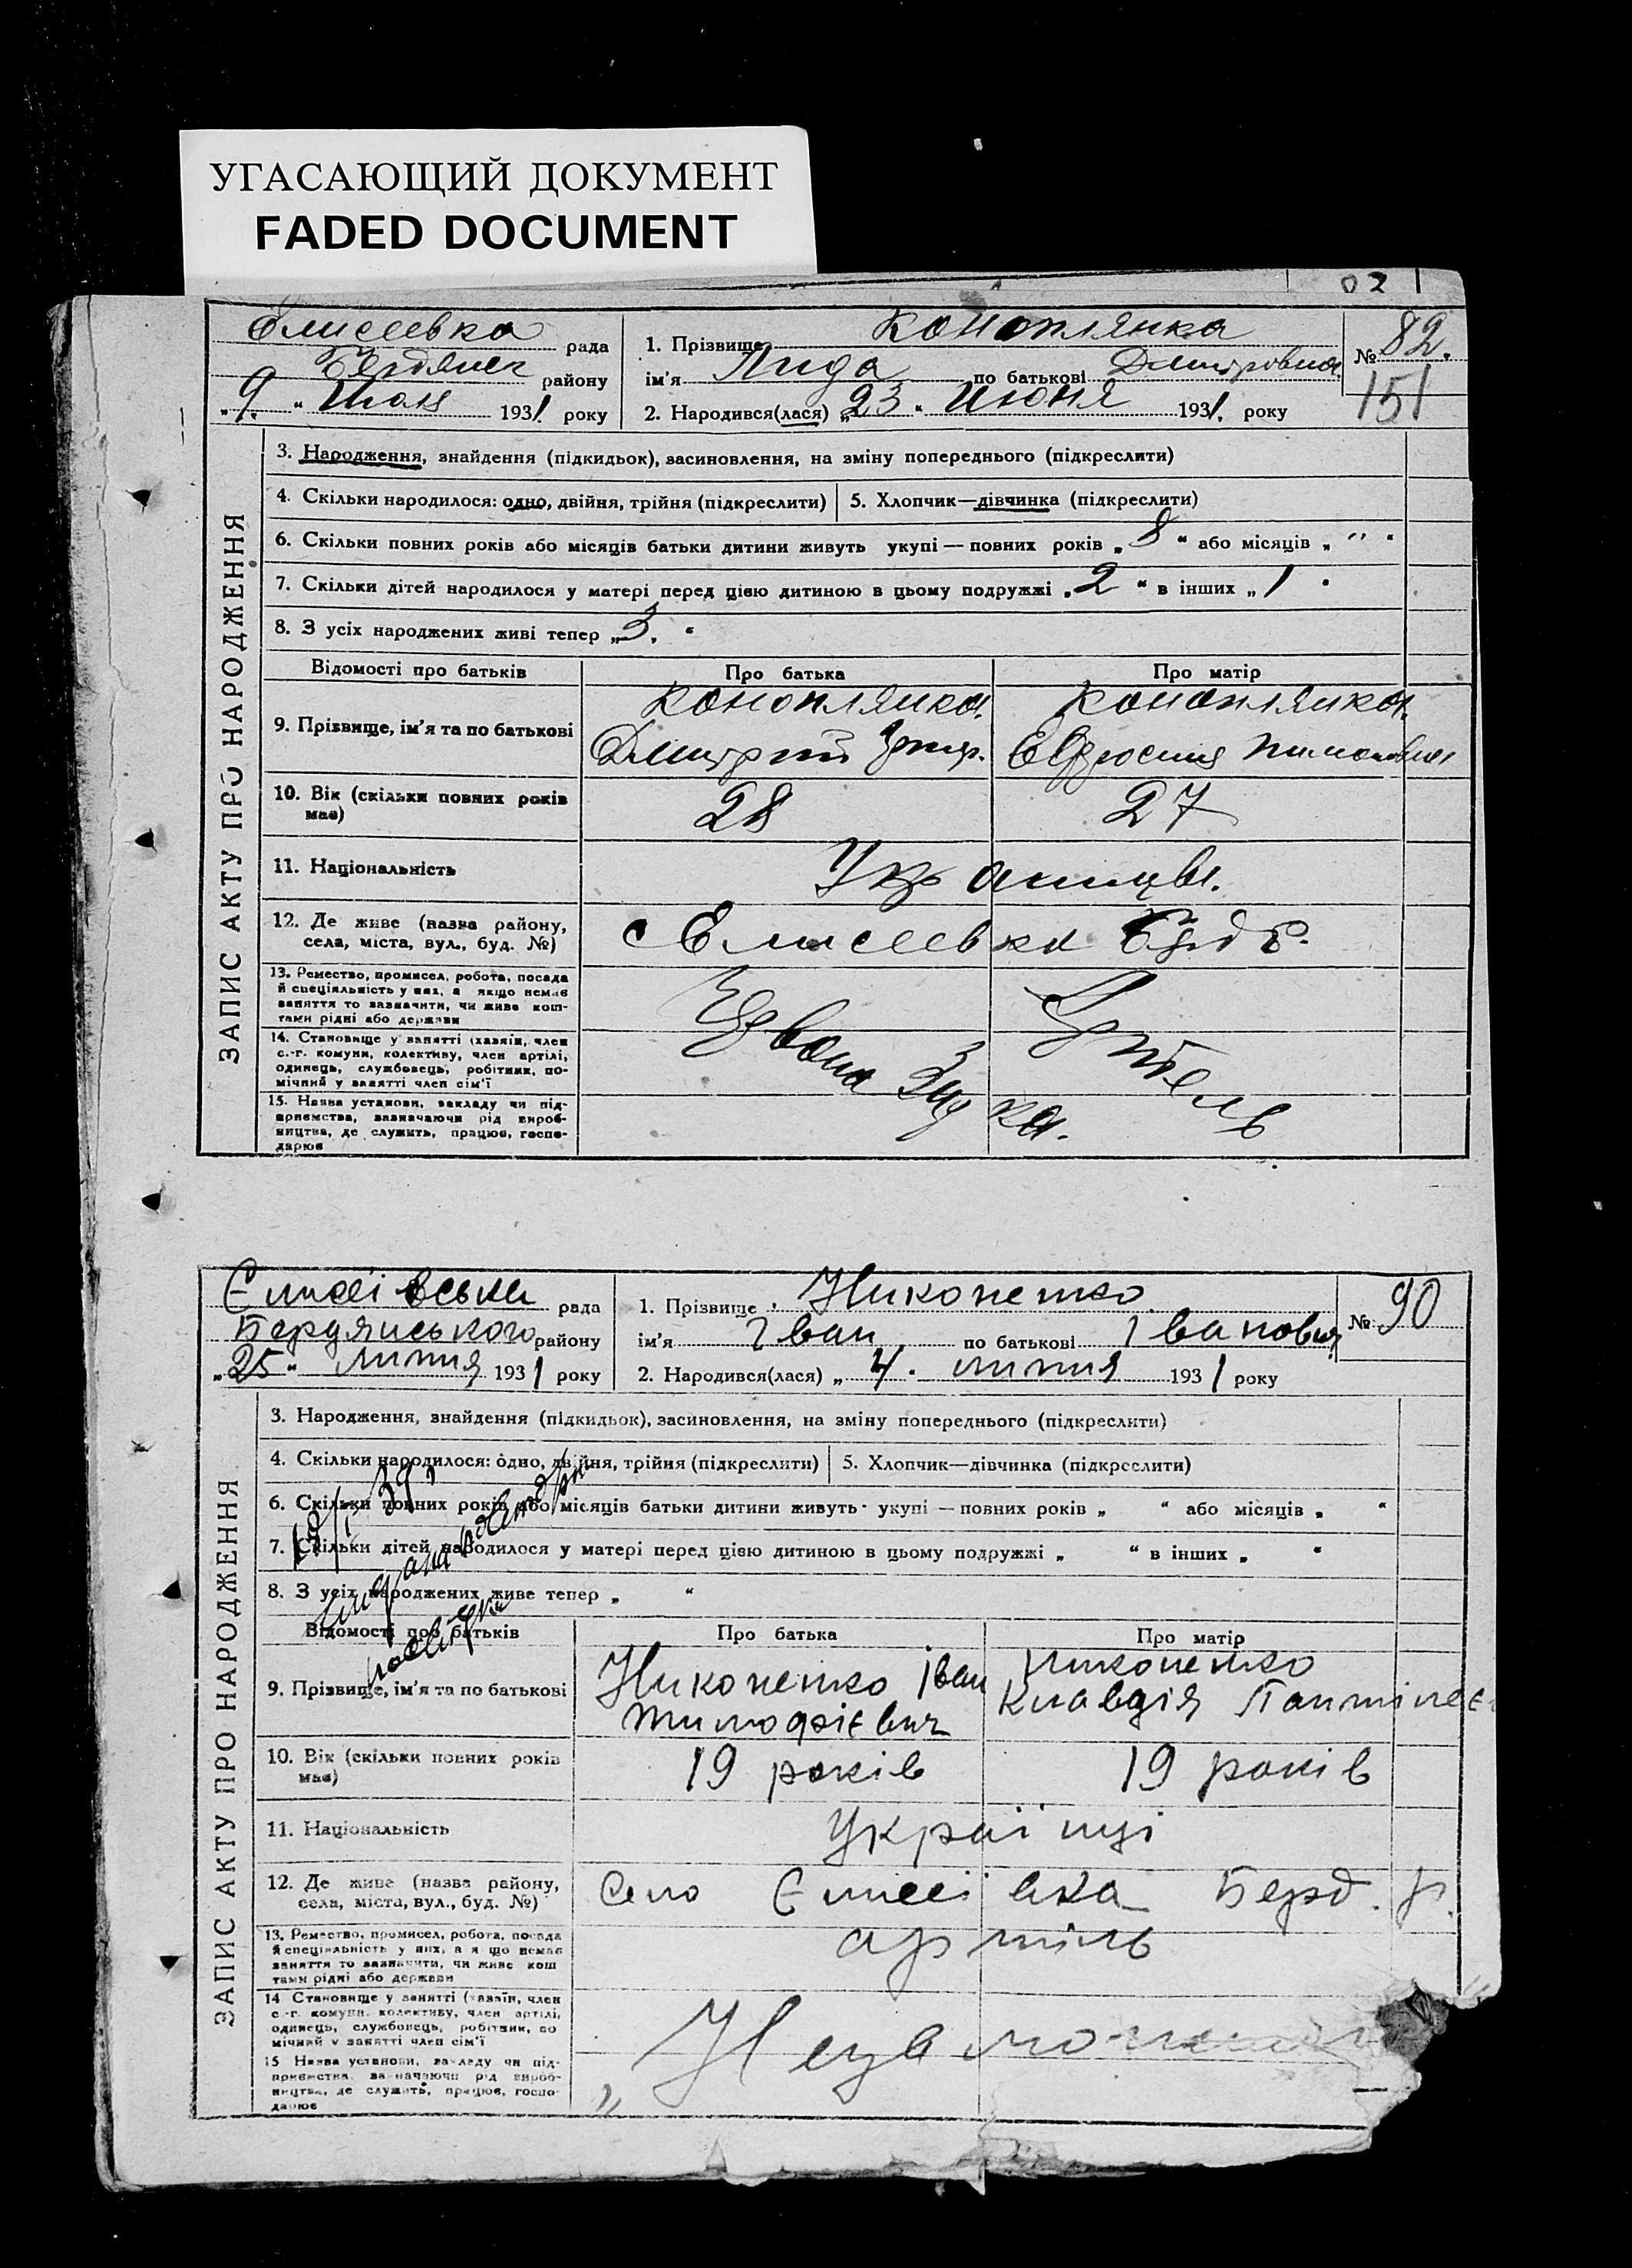 УГАСАЮЩИЙ ДОКУМЕНТ
FADED DOCUMENT
02
ЗАПИС АКТУ ПРО НАРОДЖЕННЯ
Елисеевка рада
Бердянск району
„9.“ Июля 1931. року
1. Прізвище Коноплянка
ім'я Лида по батькові Дмитровна
2. Народився(лася) „23“ Июня 1931. року
№ 82.
151
3. Народження, знайдення (підкидьок), засиновлення, на зміну попереднього (підкреслити)
4. Скільки народилося: одно, двійня, трійня (підкреслити) 5. Хлопчик—дівчинка (підкреслити)
6. Скільки повних років або місяців батьки дитини живуть укупі — повних років „8“ або місяців „ “
7. Скільки дітей народилося у матері перед цією дитиною в цьому подружжі „2“ в інших „1“
8. З усіх народжених живі тепер „3.“
Відомості про батьків Про батька Про матір
9. Прізвище, ім'я та по батькові
Коноплянка. Коноплянка.
Дмитрий Евдокия
10. Вік (скільки повних років має) 28 27
11. Національність Украинцы.
12. Де живе (назва району, села, міста, вул., буд. №)
с Елисеевка Берд Р.
13. Ремество, промисел, робота, посада
й спеціяльність у них, а якщо немає
заняття то зазначити, чи живе кош-
тами рідні або держави
14. Становище у занятті (хазяїн, член
с.-г. комуни, колективу, член артілі,
одинець, службовець, робітник, по-
мічний у занятті член сім'ї
15. Назва установи, закладу чи під-
приємства, зазначаючи рід вироб-
ництва, де служить, працює, госпо-
дарює
Артель
ЗАПИС АКТУ ПРО НАРОДЖЕННЯ
Єлисеівська рада
Бердянського району
„25“ липня 1931 року
1. Прізвище Никоненко
ім'я Іван по батькові Іванович
2. Народився(лася) „4“ липня 1931 року
№ 90
3. Народження, знайдення (підкидьок), засиновлення, на зміну попереднього (підкреслити)
4. Скільки народилося: одно, двійня, трійня (підкреслити) 5. Хлопчик—дівчинка (підкреслити)
6. Скільки повних років або місяців батьки дитини живуть укупі — повних років „ “ або місяців „ “
7. Скільки дітей народилося у матері перед цією дитиною в цьому подружжі „ “ в інших „ “
8. З усіх народжених живе тепер „ “
Відомості про батьків Про батька Про матір
9. Прізвище, ім'я та по батькові
Никоненко Іван Никоненко
Тимофієвич Клавдія
10. Вік (скільки повних років має) 19 років 19 років
11. Національність Українці
12. Де живе (назва району, села, міста, вул., буд. №)
Село Єлисеівка Берд. р.
13. Ремество, промисел, робота, посада
й спеціяльність у них, а якщо немає
заняття то зазначити, чи живе кош
тами рідні або держави
артіль
14 Становище у занятті (хазяїн, член
с-г. комуни, колективу, член артілі,
одинець, службовець, робітник, по
мічний у занятті член сім'ї
15 Назва установи, закладу чи під-
приємства, зазначаючи рід вироб-
ництва, де служить, працює, госпо-
дарює